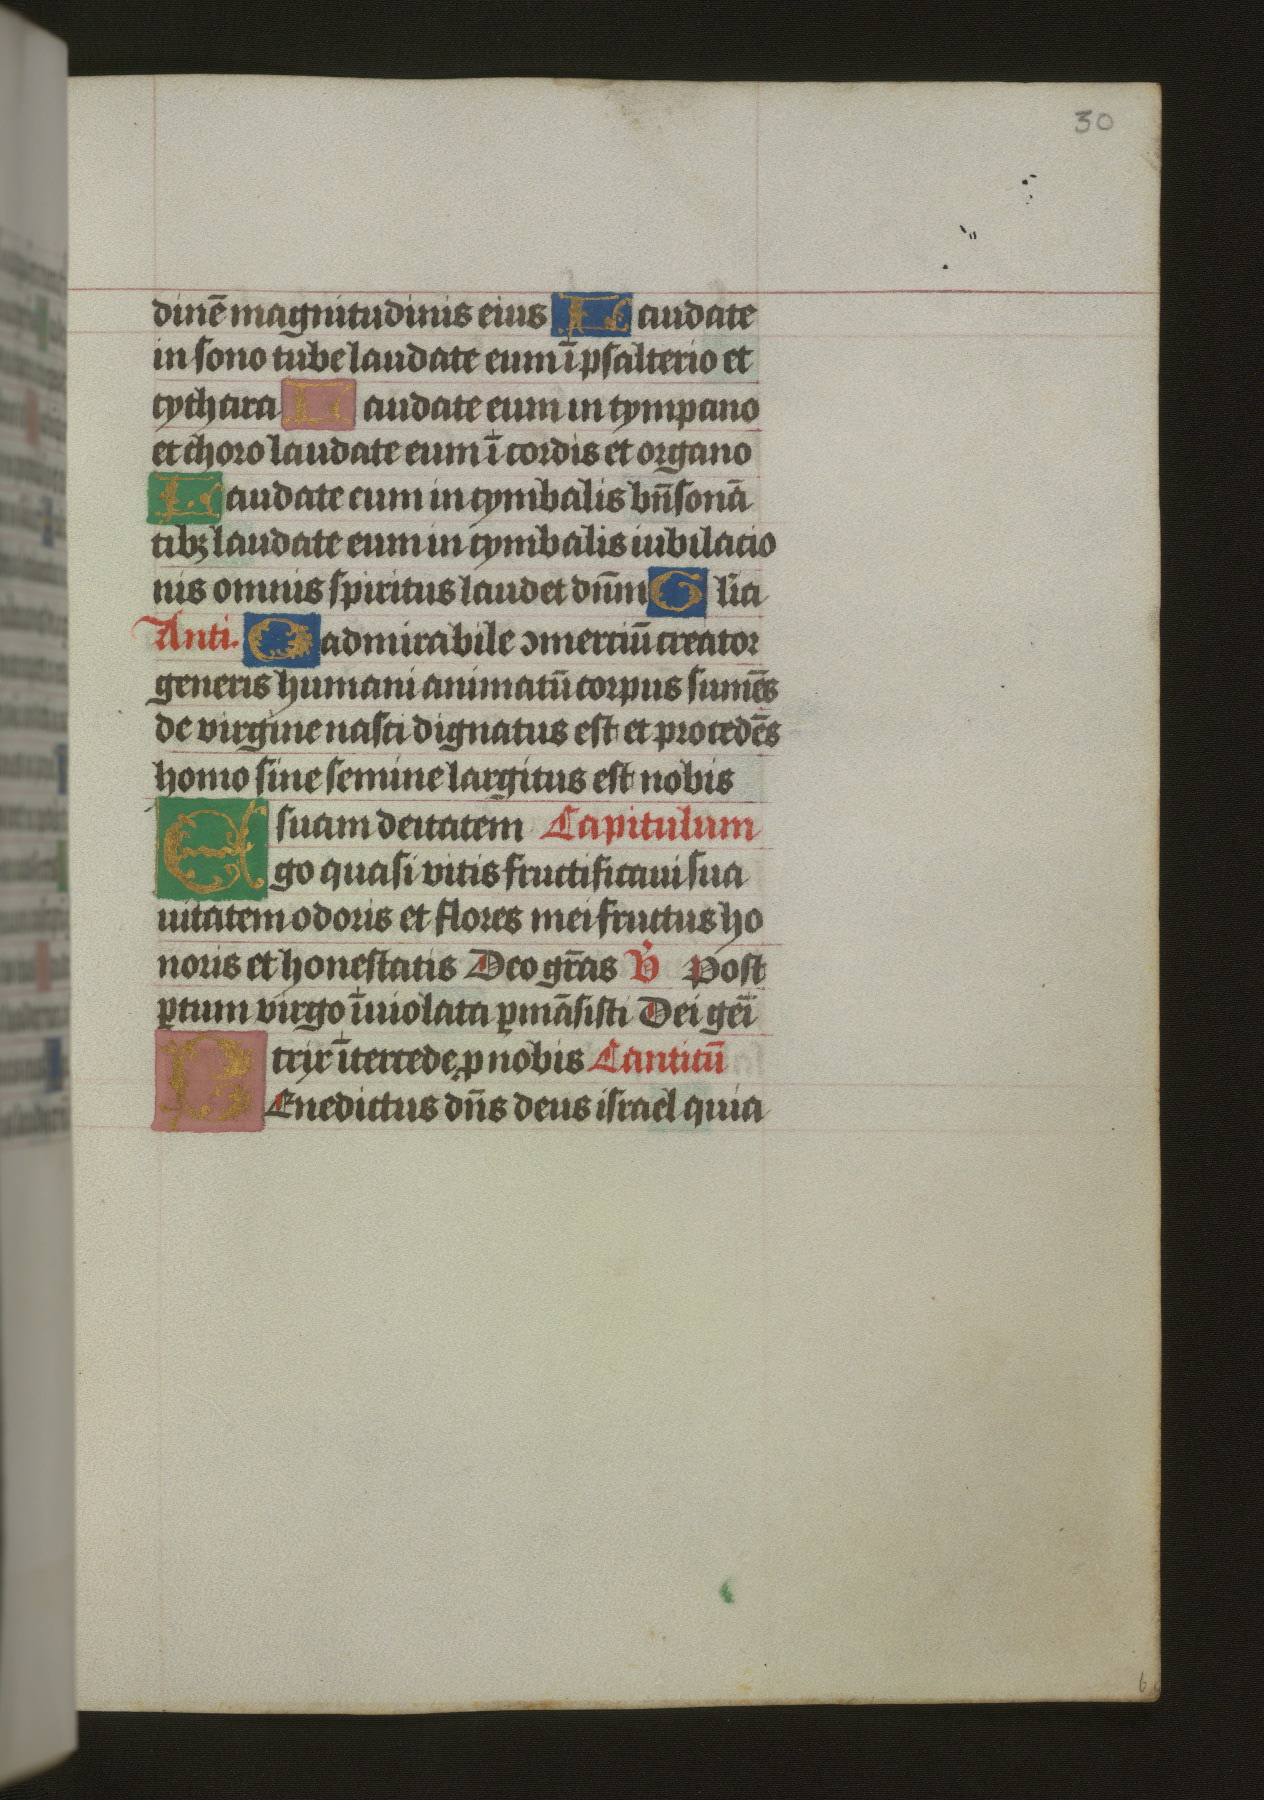 30
dinē magnitudinis eius Laudate
in sono tube laudate eum ī psalterio et
cythara Laudate eum in tympano
et choro laudate eum ī cordis et organo
Laudate eum in cymbalis bn̄sonā
tibꝫ laudate eum in cymbalis iubilacio
nis omnis spiritus laudet dn̄m Gl̄ia
Anti. O admirabile ꝯmerciū creator
generis humani animatū corpus sumēs
de virgine nasci dignatus est et procedēs
homo sine semine largitus est nobis
suam deitatem Capitulum
Ego quasi vitis fructificaui sua
uitatem odoris et flores mei fructus ho
noris et honestatis Deo gr̄as V̄ Post
ꝑtum virgo īuiolata ꝑmāsisti Dei geī
trix ītercede ꝓ nobis Canticū
BEnedictus dn̄s deus israel quia